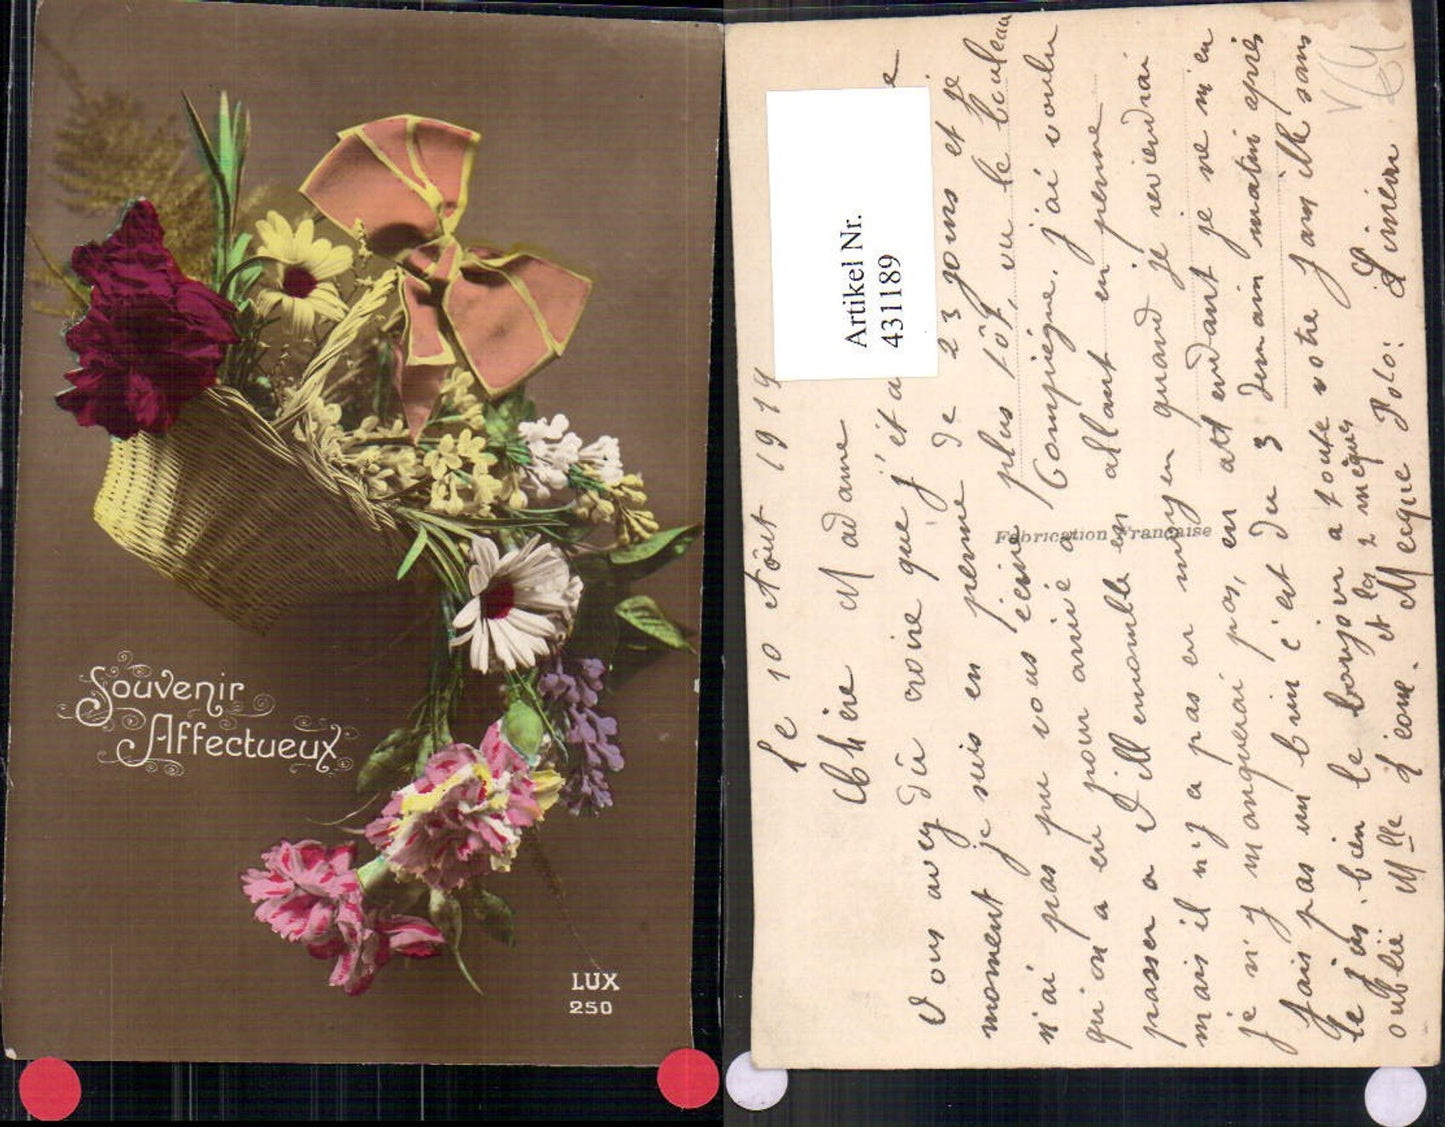 Souvenir
Affectueux
LUX
250
Artikel Nr.
431189
Fabrication Française
le 10 Aôut 1919
Chère Madame
Vous avez dù croire que j'éta e
moment je suis en perme de 23 jours et je
n'ai pas pu vous écrire plus tôt, vu le bouleau
qu'on a eu pour arrivé a Compiègne. j'ai voulu
passer a en allant en perme
mais il n'y a pas eu moyen quand je reviendrai
je n'y manquerai pas, en attendant je ne m'en
fais pas un brin c'est du 3 demain matin après
le jus. bien le bonjour a toute votre famille sans
oublié Mlle Léone. et les 2 mèques
Mecque Polo: